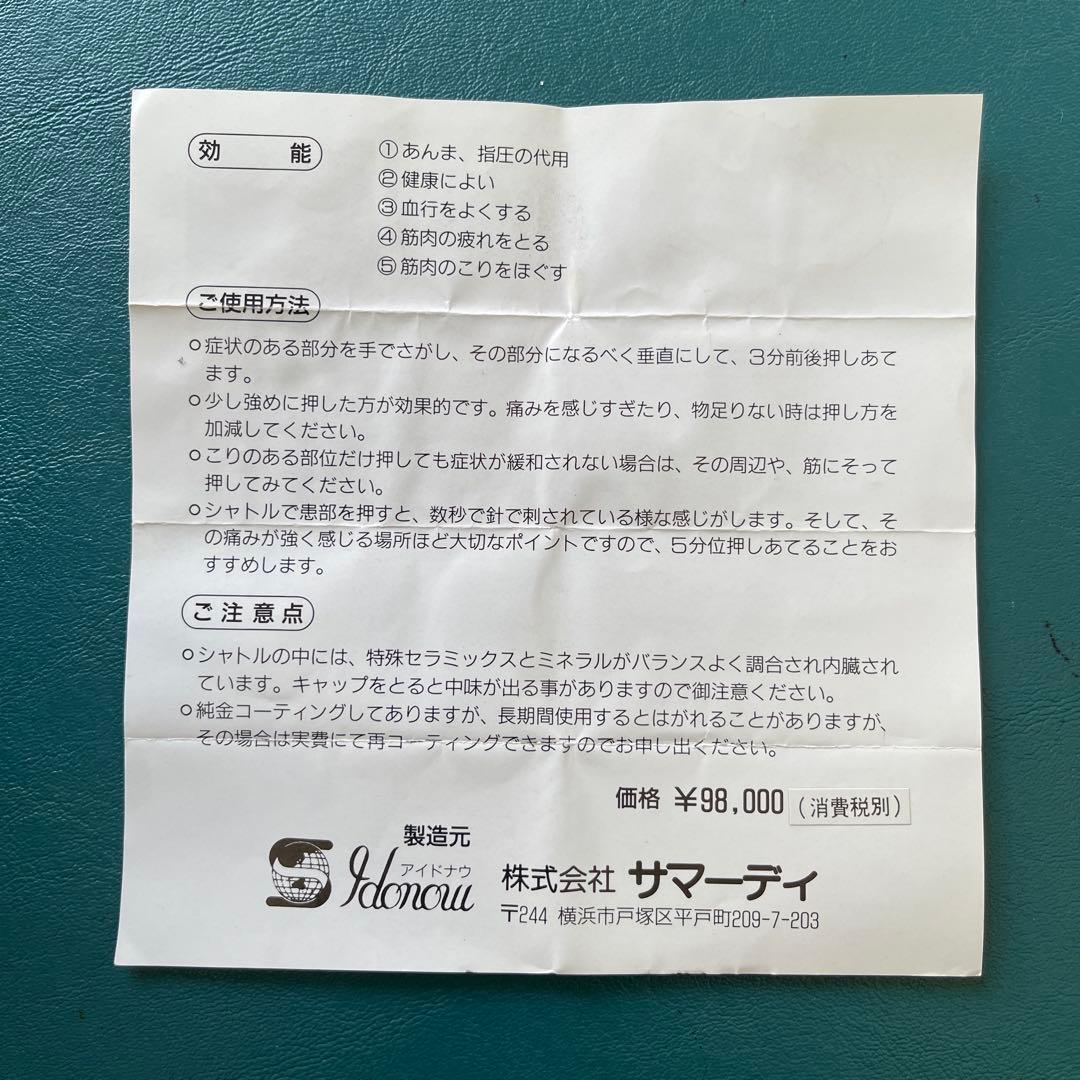 効 能
①あんま、指圧の代用
②健康によい
③血行をよくする
④筋肉の疲れをとる
⑤筋肉のこりをほぐす
ご使用方法
○症状のある部分を手でさがし、その部分になるべく垂直にして、3分前後押しあて
ます。
○少し強めに押した方が効果的です。痛みを感じすぎたり、物足りない時は押し方を
加減してください。
○こりのある部位だけ押しても症状が緩和されない場合は、その周辺や、筋にそって
押してみてください。
○シャトルで患部を押すと、数秒で針で刺されている様な感じがします。そして、そ
の痛みが強く感じる場所ほど大切なポイントですので、5分位押しあてることをお
すすめします。
ご注意点
○シャトルの中には、特殊セラミックスとミネラルがバランスよく調合され内臓され
ています。キャップをとると中味が出る事がありますので御注意ください。
○純金コーティングしてありますが、長期間使用するとはがれることがありますが、
その場合は実費にて再コーティングできますのでお申し出ください。
価格 ¥98,000 (消費税別)
製造元
アイドナウ
Idonow 株式会社 サマーディ
〒244 横浜市戸塚区平戸町209-7-203